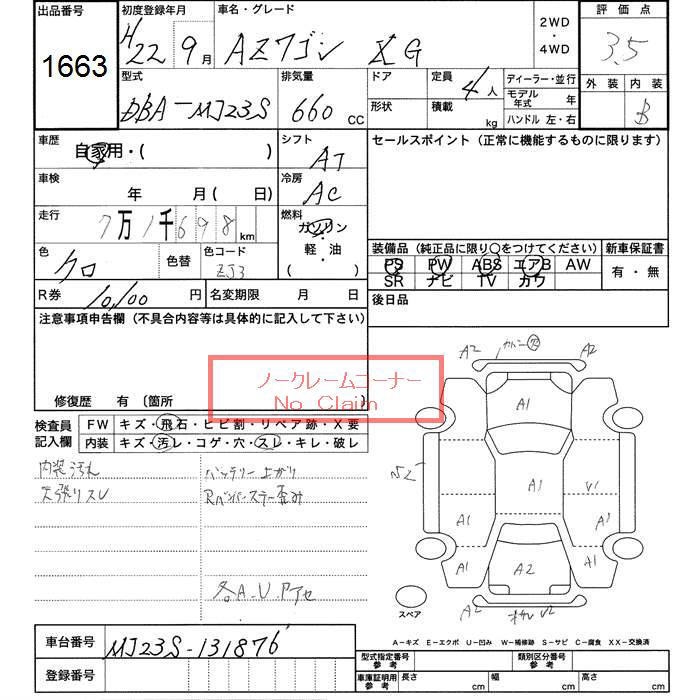 出品番号
1663
初度登録年月
H22 9月
車名・グレード
AZワゴン XG
2WD
・
4WD
評価点
3.5
外装 内装
B
型式
DBA-MJ23S
排気量
660 CC
ドア
形状
定員
4人
積載 kg
ディーラー・並行
モデル年式 年
ハンドル 左・右
車歴
自家用・( )
シフト
AT
車検
年 月( 日)
冷房
AC
走行
7万1千698km
燃料
ガソリン
・
軽・油
( )
色
クロ
色替
色コード
ZJ3
R券 10,100円
名変期限 月 日
セールスポイント(正常に機能するものに限ります)
装備品(純正品に限り○をつけてください)
新車保証書
PS PW ABS エアB AW
SR ナビ TV カワ
有・無
後日品
注意事項申告欄(不具合内容等は具体的に記入して下さい)
修復歴 有(箇所 )
ノークレームコーナー
No Claim
検査員記入欄
FW キズ・飛石・ヒビ割・リペア跡・X要
内装 キズ・汚レ・コゲ・穴・スレ・キレ・破レ
内装汚れ
天張りスレ
バッテリー上がり
Rバンパーステー歪み
各A.U.アセ
A2 カバン 穴 A2
A1
S2
A1
A1
V1
A1
A1
A1
A2
A1
スペア
A2
A-キズ E-エクボ U-凹み W-補修跡 S-サビ C-腐食 XX-交換済
車台番号
MJ23S-131876
登録番号
型式指定番号 参考
類別区分番号 参考
車庫証明用 参考
長さ cm
幅 cm
高さ cm